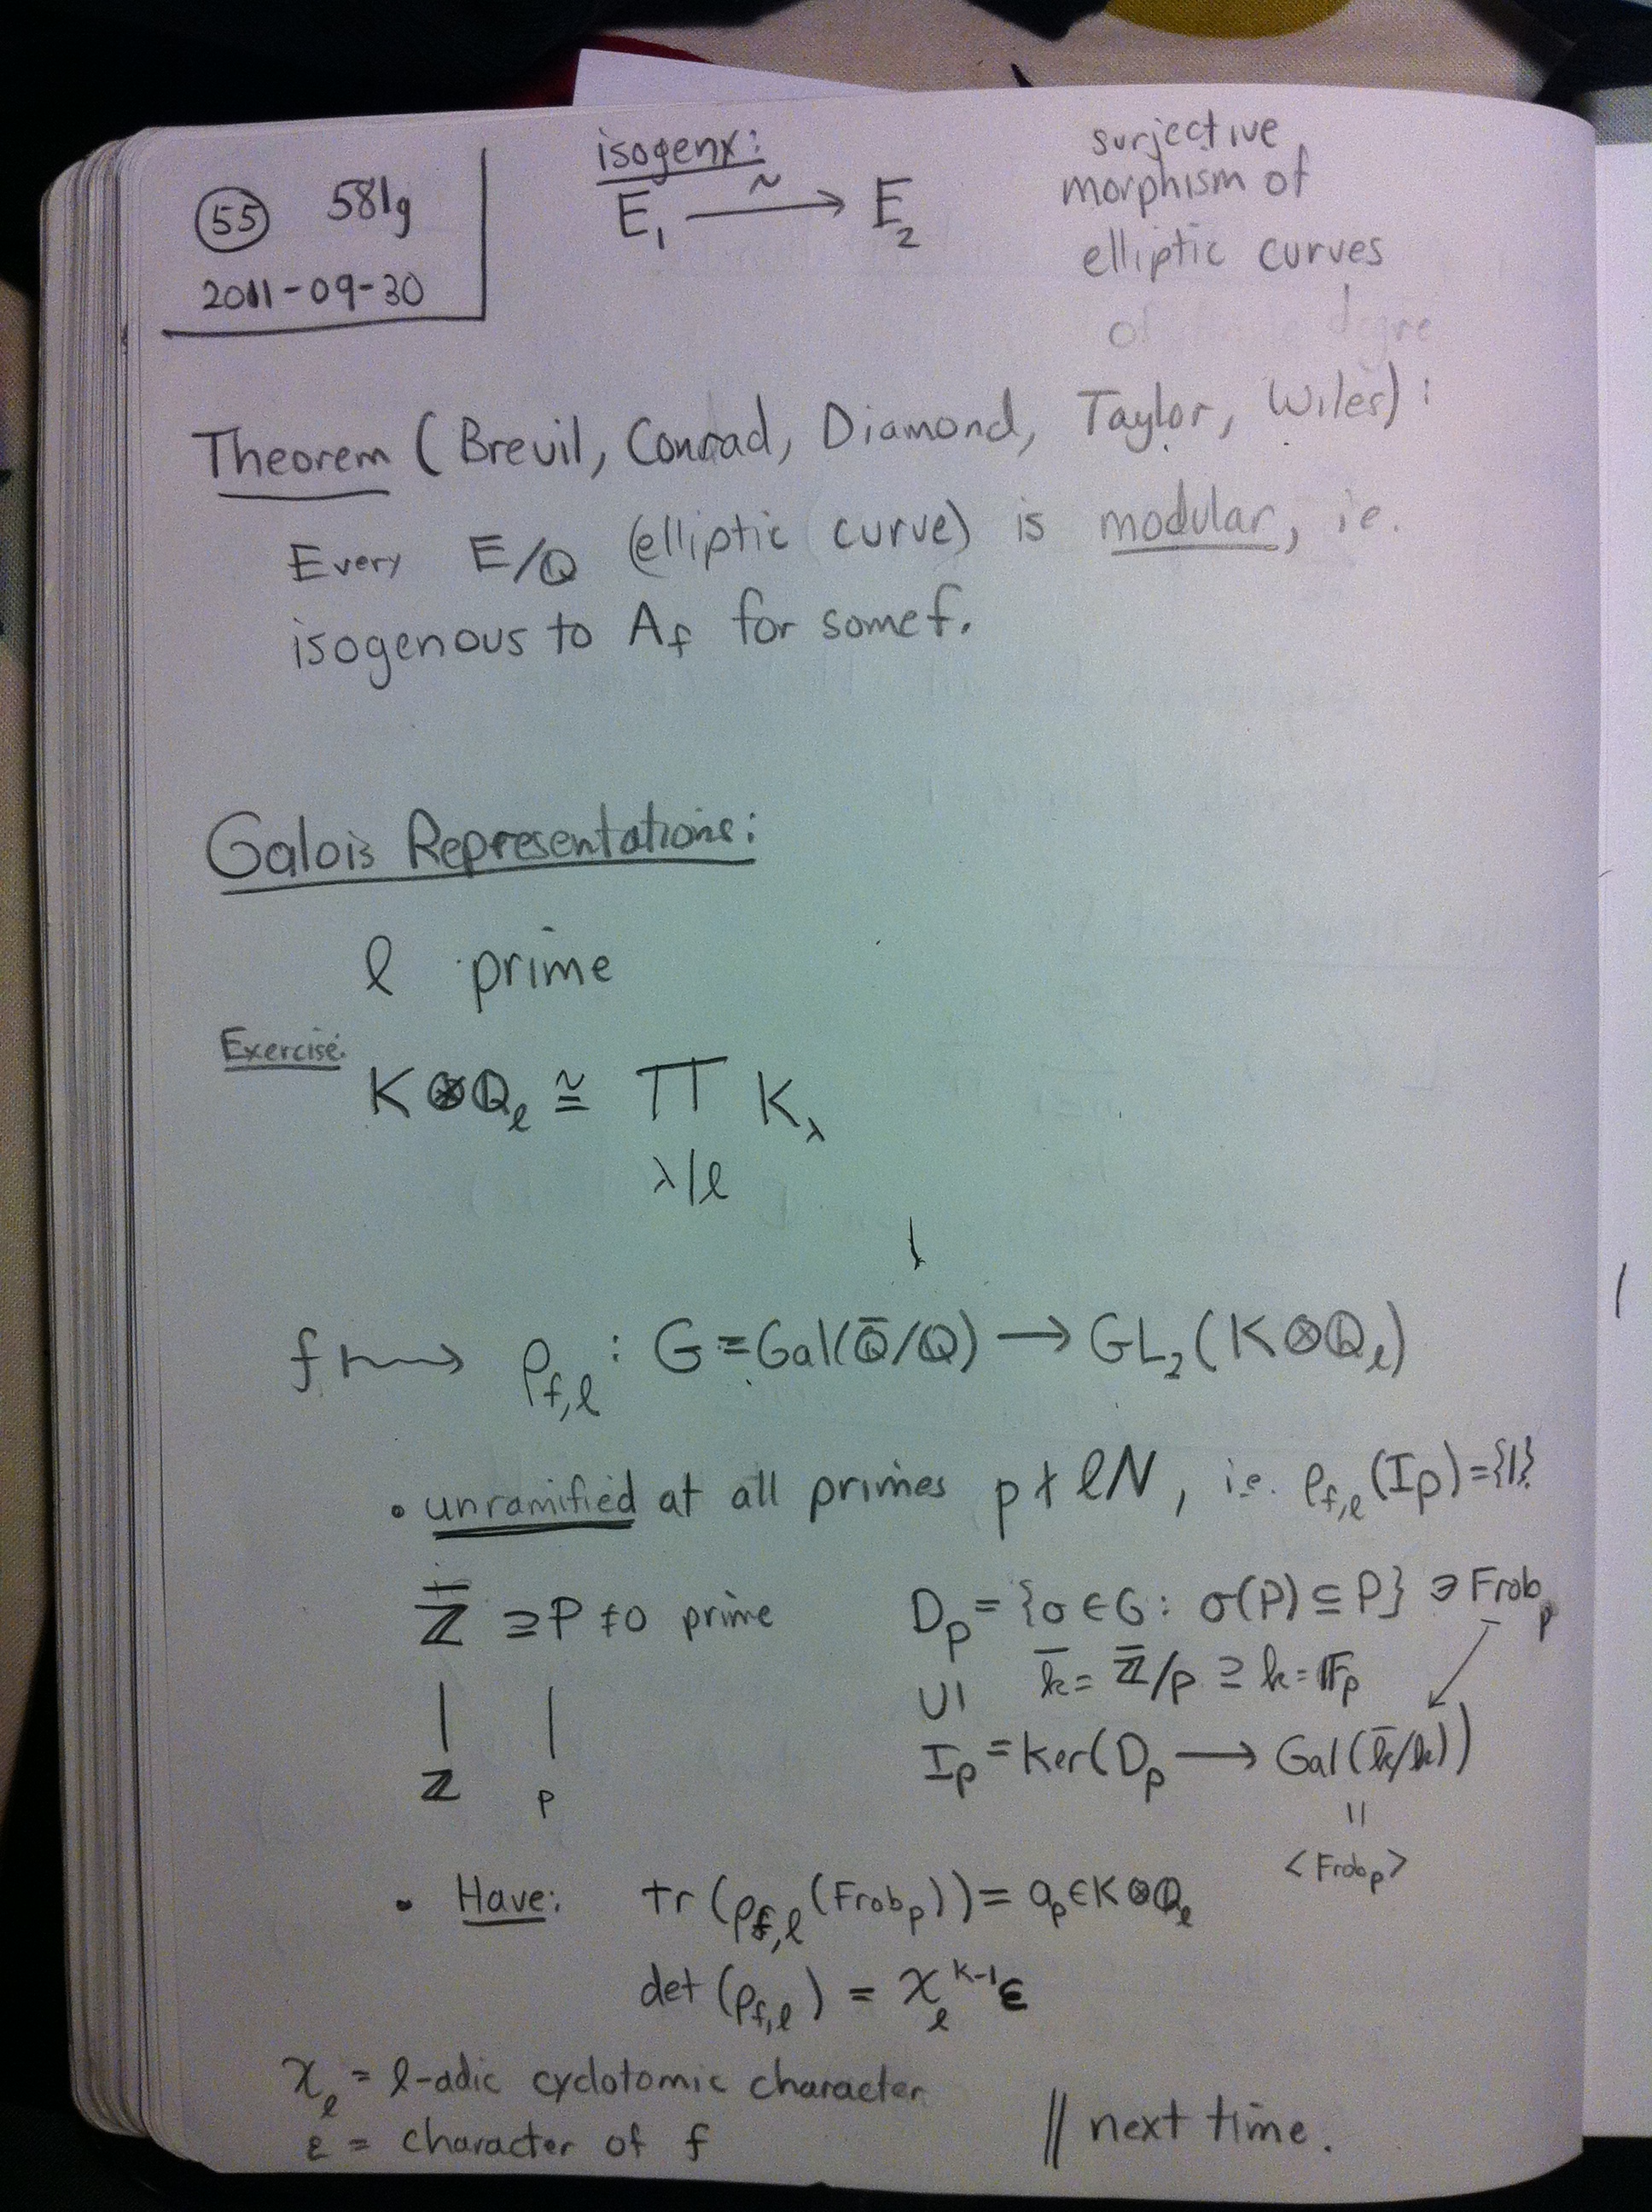 55 581g
2011-09-30
isogeny:
E₁ ⟶̃ E₂
surjective
morphism of
elliptic curves
of degree
Theorem (Breuil, Conrad, Diamond, Taylor, Wiles):
Every E/ℚ (elliptic curve) is modular, ie.
isogenous to A_f for some f.
Galois Representations:
ℓ prime
Exercise:
K⊗ℚ_ℓ ≅ ∏ K_λ
λ|ℓ
f ⟼ ρ_{f,ℓ} : G = Gal(ℚ̄/ℚ) ⟶ GL₂(K⊗ℚ_ℓ)
• unramified at all primes p∤ℓN, i.e. ρ_{f,ℓ}(I_p)={1}
ℤ̄ ⊇ P ≠ 0 prime
| |
ℤ p
D_p = {σ∈G : σ(P) ⊆ P} ∋ Frob_p
∪| k̄ = ℤ̄/p ⊇ k = 𝔽_p
I_p = ker(D_p ⟶ Gal(k̄/k))
||
<Frob_p>
• Have: tr(ρ_{f,ℓ}(Frob_p)) = a_p ∈ K⊗ℚ_ℓ
det(ρ_{f,ℓ}) = χ_ℓ^{k-1} ε
χ_ℓ = ℓ-adic cyclotomic character
ε = character of f
|| next time.